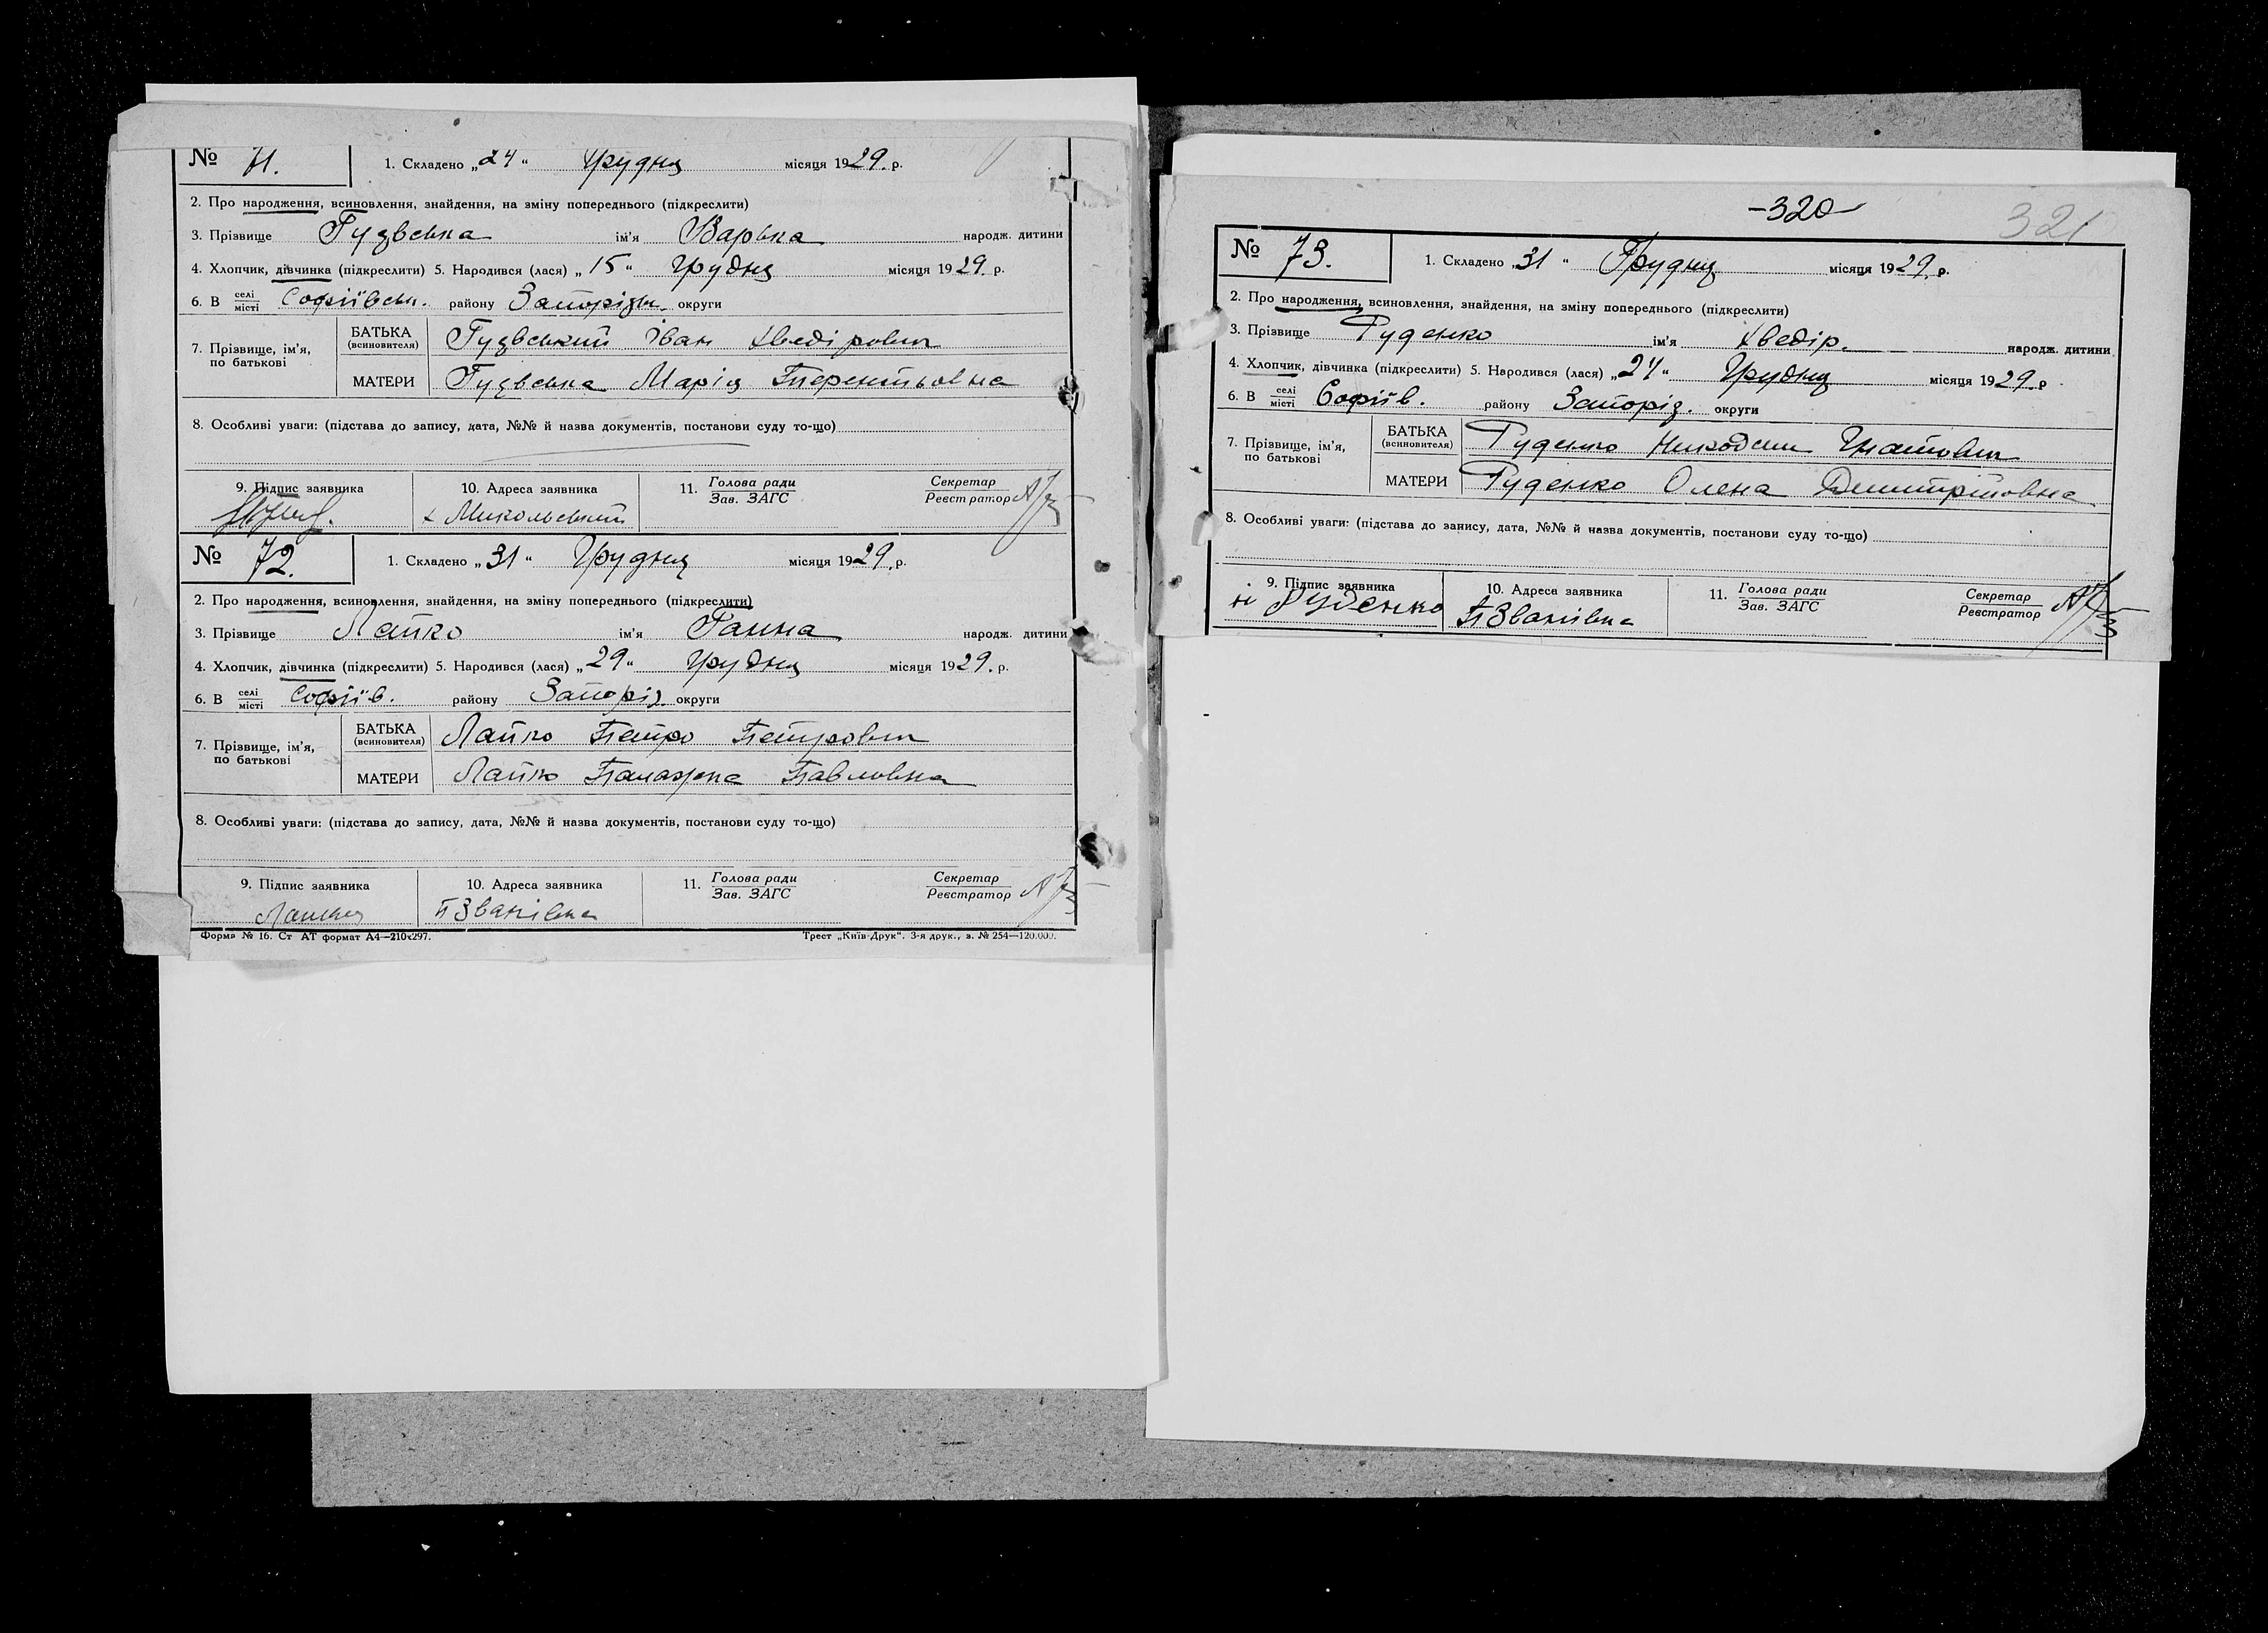 № 71. 1. Складено „24“ Грудня місяця 1929. р.
2. Про народження, всиновлення, знайдення, на зміну попереднього (підкреслити)
3. Прізвище Гузвська ім'я Варька народж. дитини
4. Хлопчик, дівчинка (підкреслити) 5. Народився (лася) „15“ Грудня місяця 1929. р.
6. В селі місті Софіївськ. району Запорізьк. округи
7. Прізвище, ім'я, по батькові
БАТЬКА (всиновителя) Гузвський Іван Хведірович
МАТЕРИ Гузвська Марія Терентьовна
8. Особливі уваги: (підстава до запису, дата, №№ й назва документів, постанови суду то-що)
9. Підпис заявника 10. Адреса заявника 11. Голова ради Зав. ЗАГС Секретар Реєстратор
х Микольський
№ 72. 1. Складено „31“ Грудня місяця 1929. р.
2. Про народження, всиновлення, знайдення, на зміну попереднього (підкреслити)
3. Прізвище Лапко ім'я Ганна народж. дитини
4. Хлопчик, дівчинка (підкреслити) 5. Народився (лася) „29“ Грудня місяця 1929. р.
6. В селі місті Софіїв. району Запоріз. округи
7. Прізвище, ім'я, по батькові
БАТЬКА (всиновителя) Лапко Петро Петрович
МАТЕРИ Лапко Палажка Павловна
8. Особливі уваги: (підстава до запису, дата, №№ й назва документів, постанови суду то-що)
9. Підпис заявника 10. Адреса заявника 11. Голова ради Зав. ЗАГС Секретар Реєстратор
П Званівка
Форма № 16. Ст АТ формат А4—210х297. Трест „Київ-Друк“. 3-я друк., з. № 254—120.000.
-320- 321
№ 73. 1. Складено „31“ Грудня місяця 1929. р.
2. Про народження, всиновлення, знайдення, на зміну попереднього (підкреслити)
3. Прізвище Руденко ім'я Хведір. народж. дитини
4. Хлопчик, дівчинка (підкреслити) 5. Народився (лася) „24“ Грудня місяця 1929. р.
6. В селі місті Софіїв. району Запоріз. округи
7. Прізвище, ім'я, по батькові
БАТЬКА (всиновителя) Руденко Никодим Гнатович
МАТЕРИ Руденко Олена Димитріiовна
8. Особливі уваги: (підстава до запису, дата, №№ й назва документів, постанови суду то-що)
9. Підпис заявника 10. Адреса заявника 11. Голова ради Зав. ЗАГС Секретар Реєстратор
н Руденко П Званівка